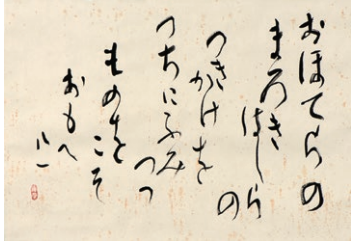 おほてらの
まろきはしらの
つきかけを
つちにふみつつ
ものをこそ
おもへ
八一